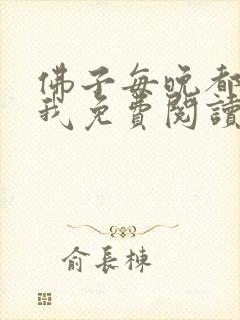 佛子每晚都
我免費閱讀
俞長棟